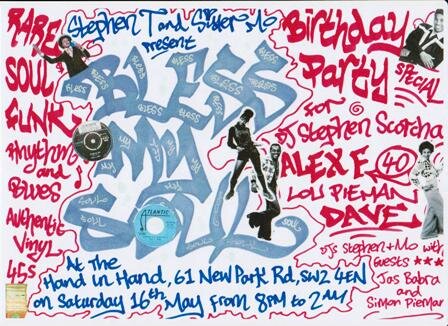 Stephen T and Sister Mo
Present
RARE
SOUL
FUNK
Rhythm
and
Blues
Authentic
Vinyl
45s
BLESS
MY
SOUL
BLESS BLESS BLESS BLESS BLESS BLESS
MY MY MY
SOUL SOUL SOUL SOUL
ATLANTIC
Birthday
Party
SPECIAL
For
DJ Stephen Scorcha
ALEX E. 40
LOU PIEMAN
DAVE
DJs Stephen + Mo with
Guests ★★★
Jas Babra
and
Simon Pieman
At The
Hand in Hand, 61 New Park Rd, SW2 4EN
on Saturday 16th May From 8PM to 2AM